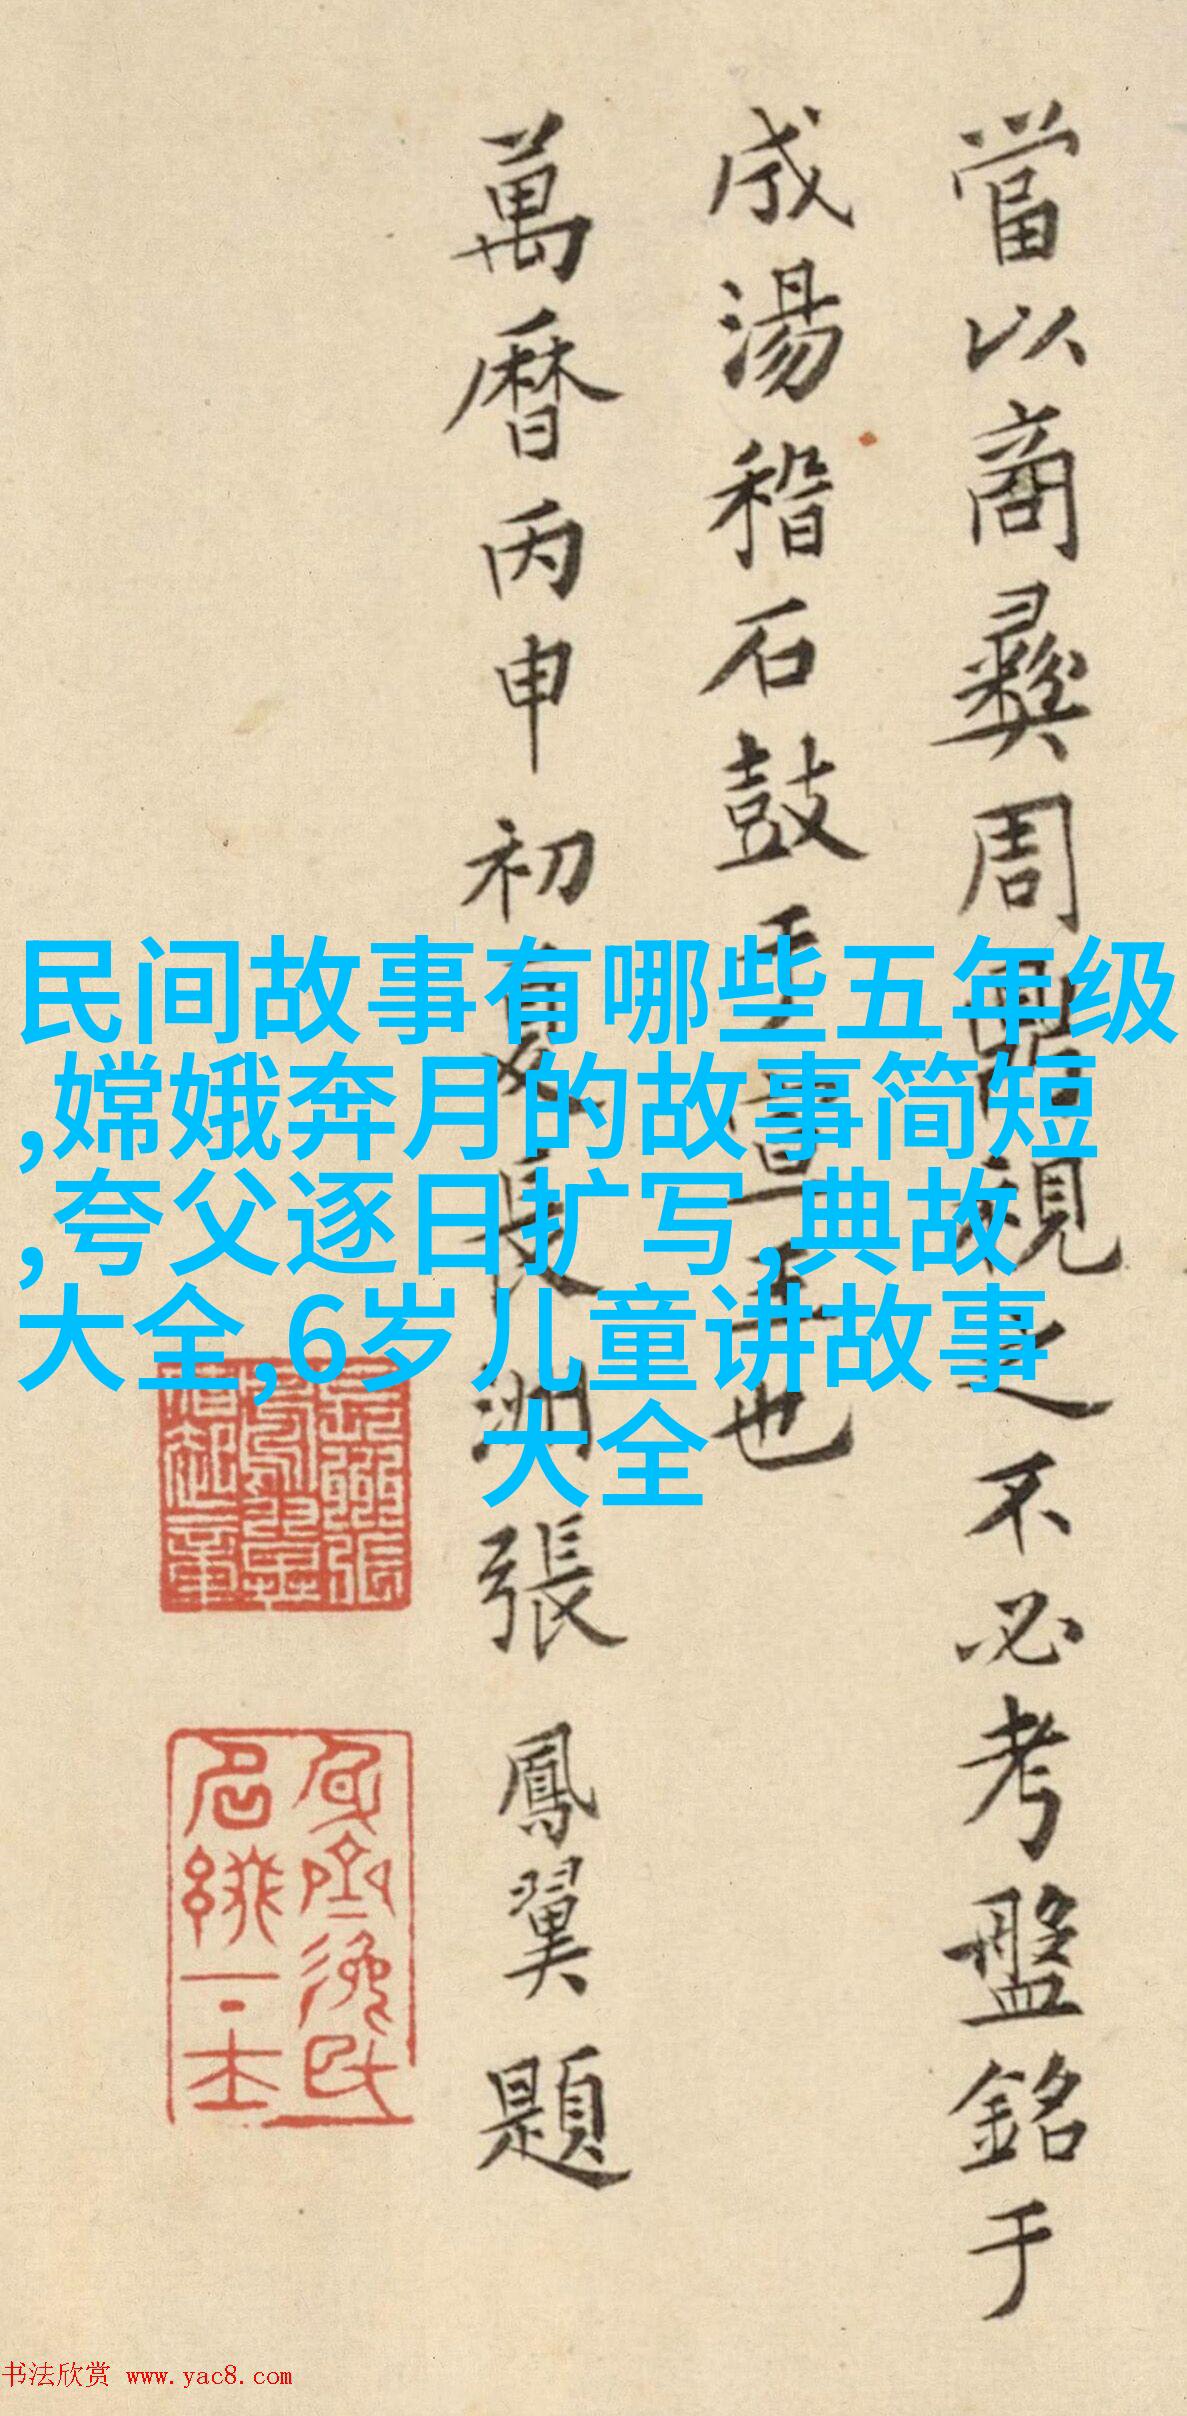 當以商彝周
視之不必考盤銘于
成湯稽石鼓于宣王也
萬曆丙申初夏長洲張鳳翼題
民间故事有哪些五年级
,嫦娥奔月的故事简短
,夸父逐日扩写,典故
大全,6岁儿童讲故事
大全
书法欣赏 www.yac8.com